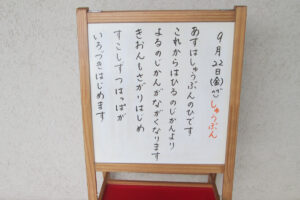 9月22日(金)
しゅうぶん
あすはしゅうぶんのひです
これからはひるのじかんより
よるのじかんがながくなります
きおんもさがりはじめ
すこしずつはっぱが
いろづきはじめます